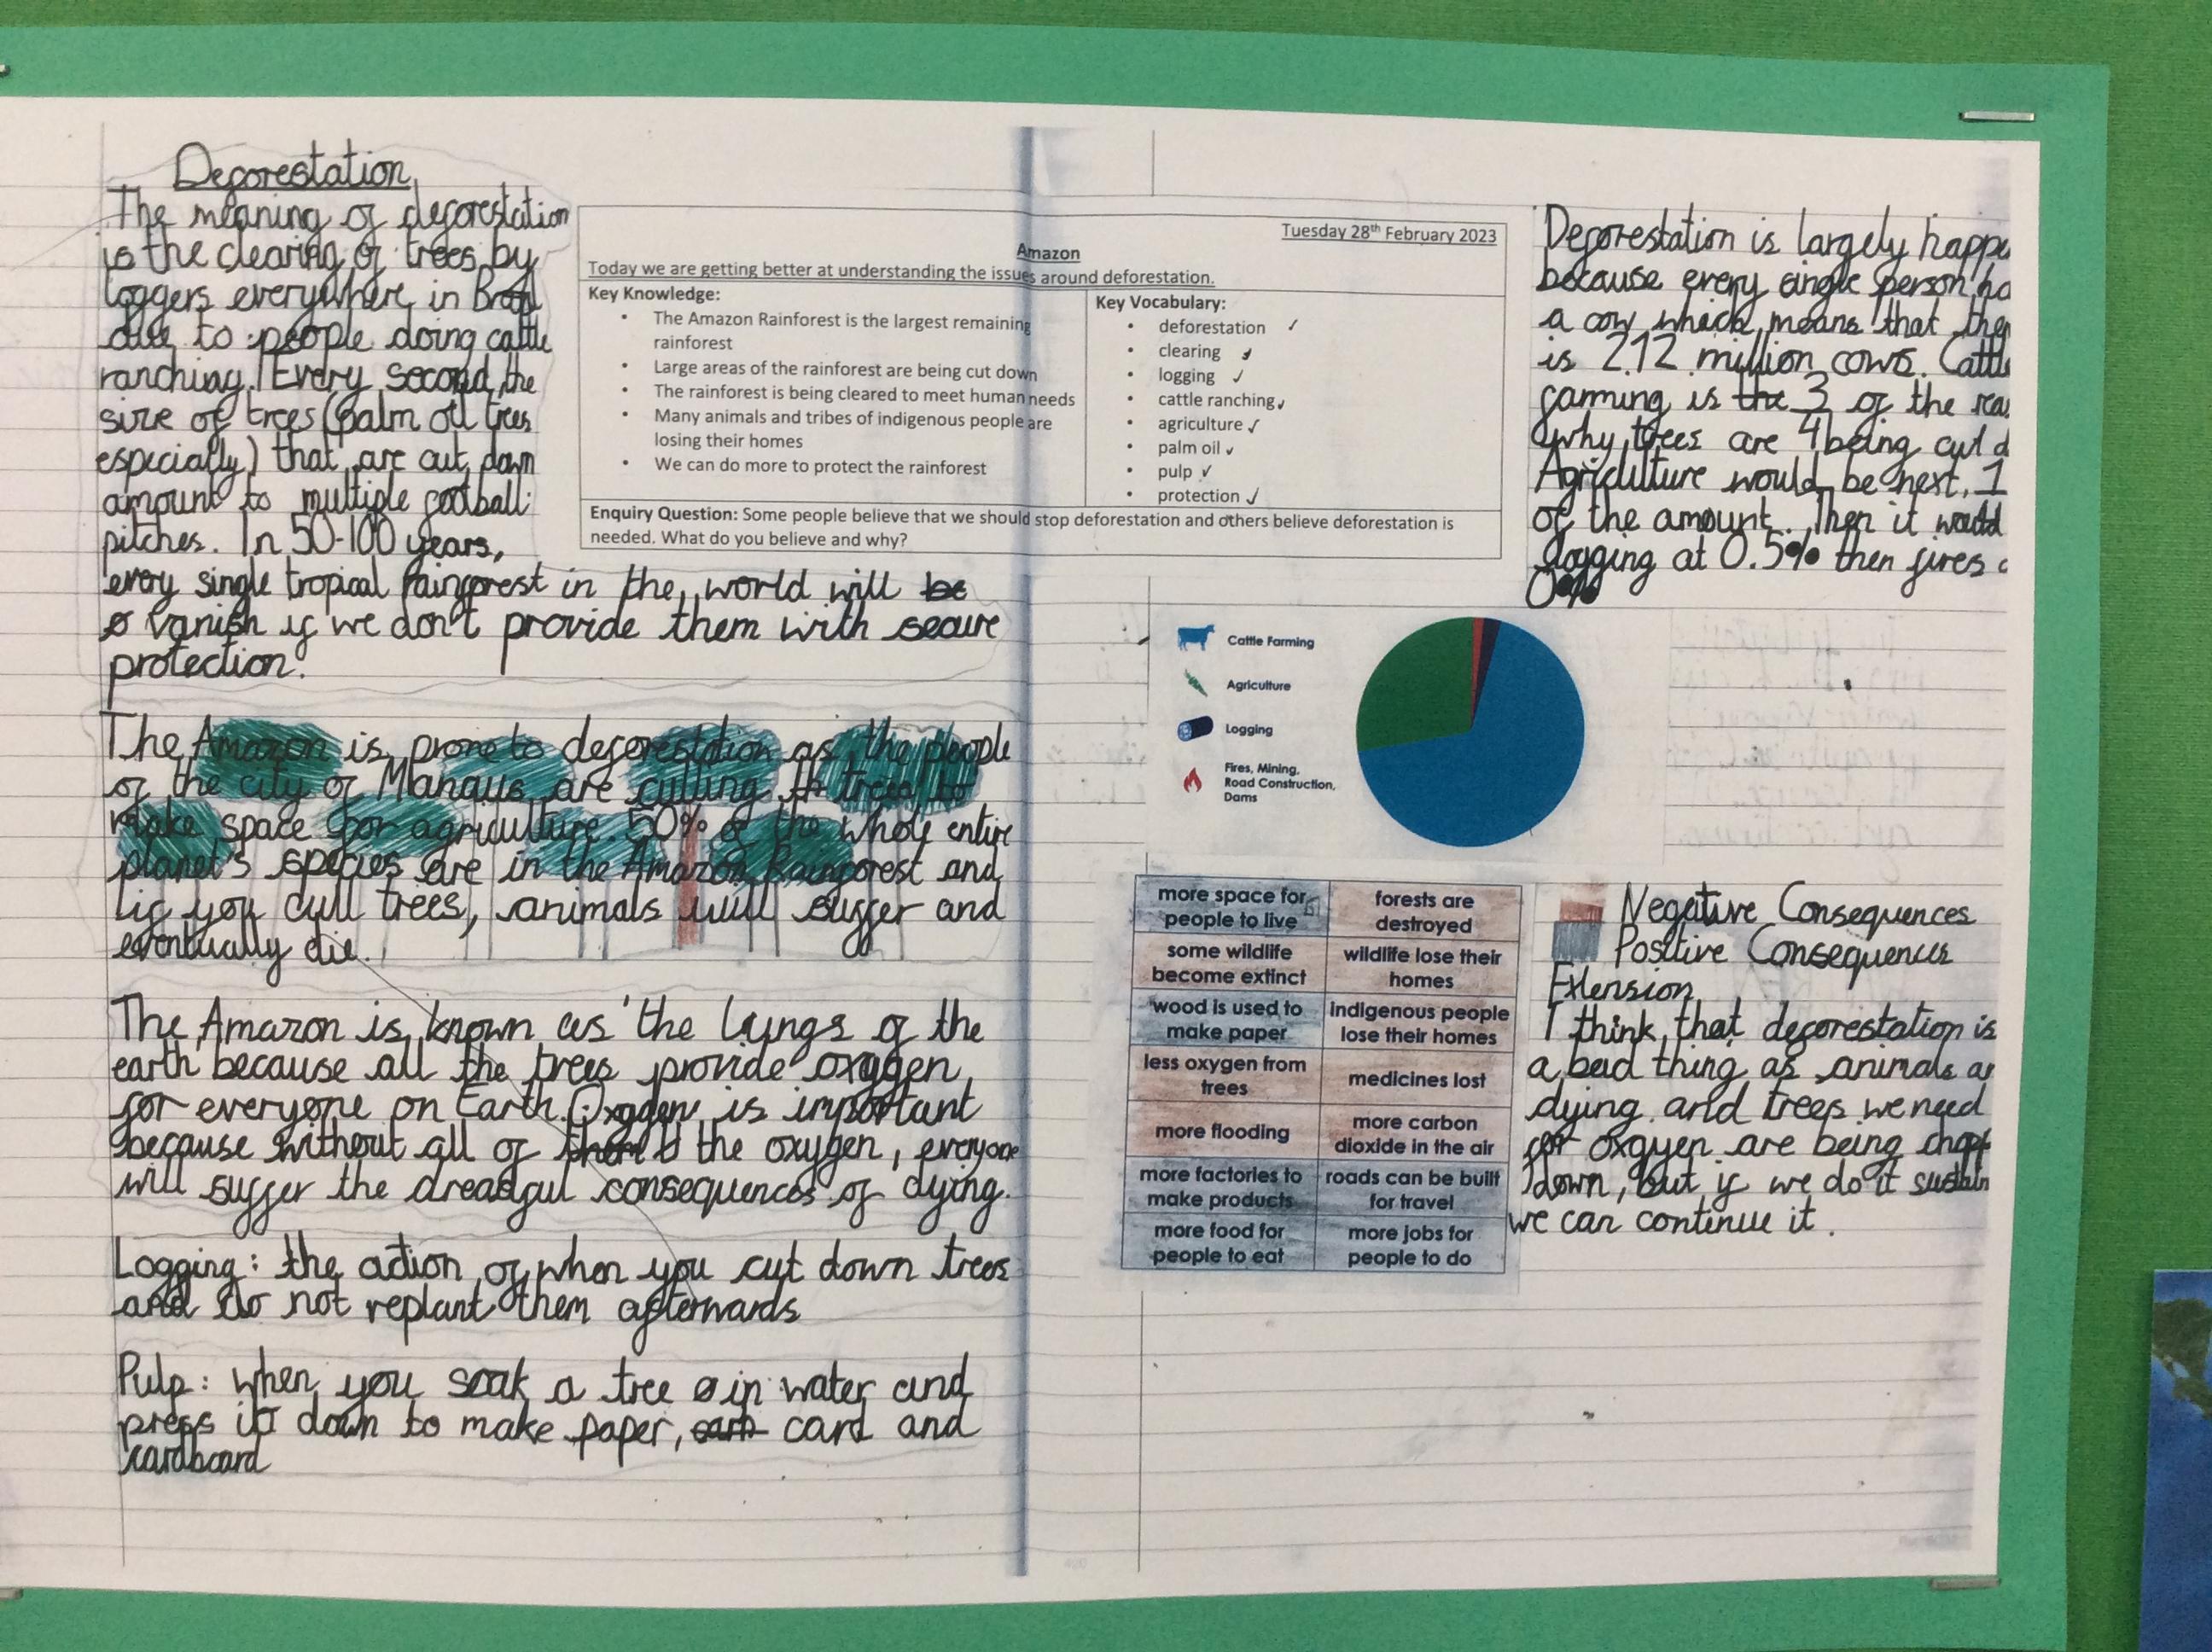 Deforestation
The meaning of deforestation
is the clearing of trees by
loggers everywhere in Brazil
due to people doing cattle
ranching. Every second, the
size of trees (palm oil trees
especially) that are cut down
amount to multiple football
pitches. In 50-100 years,
every single tropical rainforest in the world will be
vanish if we don't provide them with secure
protection.
The Amazon is prone to deforestation as the people
of the city of Manaus are cutting trees to
make space for agriculture. 50% of the whole entire
planet's species are in the Amazon Rainforest and
if you cut trees, animals will suffer and
eventually die.
The Amazon is known as 'the lungs of the
earth because all the trees provide oxygen
for everyone on Earth. Oxygen is important
because without all of the oxygen, everyone
will suffer the dreadful consequences of dying.
Logging: the action of when you cut down trees
and do not replant them afterwards
Pulp: when you soak a tree in water and
press it down to make paper, card and
cardboard
Tuesday 28th February 2023
Amazon
Today we are getting better at understanding the issues around deforestation.
Key Knowledge:
• The Amazon Rainforest is the largest remaining
rainforest
• Large areas of the rainforest are being cut down
• The rainforest is being cleared to meet human needs
• Many animals and tribes of indigenous people are
losing their homes
• We can do more to protect the rainforest
Key Vocabulary:
• deforestation ✓
• clearing ✓
• logging ✓
• cattle ranching ✓
• agriculture ✓
• palm oil ✓
• pulp ✓
• protection ✓
Enquiry Question: Some people believe that we should stop deforestation and others believe deforestation is
needed. What do you believe and why?
Deforestation is largely happe
because every single person ha
a cow which means that ther
is 212 million cows. Cattle
farming is the 3/4 of the rea
why trees are being cut d
Agriculture would be next, 1
of the amount. Then it would
logging at 0.5% then fires
0%
Cattle Farming
Agriculture
Logging
Fires, Mining,
Road Construction,
Dams
more space for
people to live
forests are
destroyed
some wildlife
become extinct
wildlife lose their
homes
wood is used to
make paper
indigenous people
lose their homes
less oxygen from
trees
medicines lost
more flooding
more carbon
dioxide in the air
more factories to
make products
roads can be built
for travel
more food for
people to eat
more jobs for
people to do
Negative Consequences
Positive Consequences
Extension
I think that deforestation is
a bad thing as animals ar
dying and trees we need
for oxgyen are being chopp
down, but if we do it sustain
we can continue it.